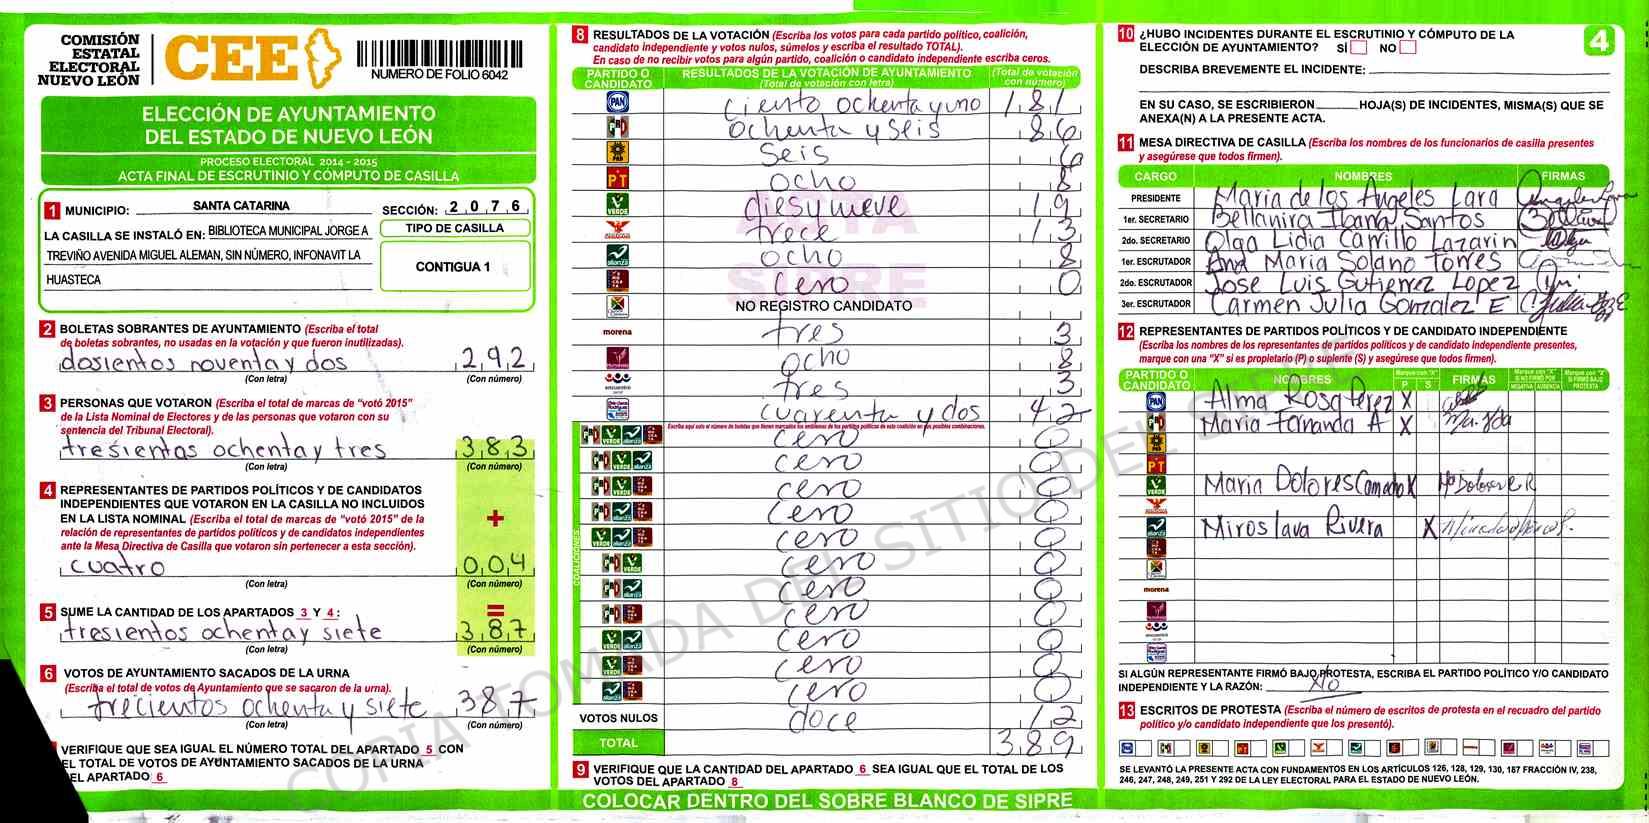 COMISIÓN
ESTATAL
ELECTORAL
NUEVO LEÓN
CEE
NUMERO DE FOLIO 6042
ELECCIÓN DE AYUNTAMIENTO
DEL ESTADO DE NUEVO LEÓN
PROCESO ELECTORAL 2014 - 2015
ACTA FINAL DE ESCRUTINIO Y CÓMPUTO DE CASILLA
1 MUNICIPIO: SANTA CATARINA SECCIÓN: 2 0 7 6
LA CASILLA SE INSTALÓ EN: BIBLIOTECA MUNICIPAL JORGE A
TREVIÑO AVENIDA MIGUEL ALEMAN, SIN NÚMERO, INFONAVIT LA
HUASTECA
TIPO DE CASILLA
CONTIGUA 1
2 BOLETAS SOBRANTES DE AYUNTAMIENTO (Escriba el total
de boletas sobrantes, no usadas en la votación y que fueron inutilizadas).
dosientos noventa y dos 292
(Con letra) (Con número)
3 PERSONAS QUE VOTARON (Escriba el total de marcas de "votó 2015"
de la Lista Nominal de Electores y de las personas que votaron con su
sentencia del Tribunal Electoral).
tresientas ochenta y tres 383
(Con letra) (Con número)
4 REPRESENTANTES DE PARTIDOS POLÍTICOS Y DE CANDIDATOS
INDEPENDIENTES QUE VOTARON EN LA CASILLA NO INCLUIDOS
EN LA LISTA NOMINAL (Escriba el total de marcas de "votó 2015" de la
relación de representantes de partidos políticos y de candidatos independientes
ante la Mesa Directiva de Casilla que votaron sin pertenecer a esta sección).
+
cuatro 004
(Con letra) (Con número)
5 SUME LA CANTIDAD DE LOS APARTADOS 3 Y 4: =
tresientos ochenta y siete 387
(Con letra) (Con número)
6 VOTOS DE AYUNTAMIENTO SACADOS DE LA URNA
(Escriba el total de votos de Ayuntamiento que se sacaron de la urna).
trecientos ochenta y siete 387
(Con letra) (Con número)
VERIFIQUE QUE SEA IGUAL EL NÚMERO TOTAL DEL APARTADO 5 CON
EL TOTAL DE VOTOS DE AYUNTAMIENTO SACADOS DE LA URNA
EL APARTADO 6
8 RESULTADOS DE LA VOTACIÓN (Escriba los votos para cada partido político, coalición,
candidato independiente y votos nulos, súmelos y escriba el resultado TOTAL).
En caso de no recibir votos para algún partido, coalición o candidato independiente escriba ceros.
PARTIDO O CANDIDATO RESULTADOS DE LA VOTACIÓN DE AYUNTAMIENTO (Total de votación con letra) (Total de votación con número)
PAN ciento ochenta y uno 181
PRD ochenta y seis 86
PRD seis 6
PT ocho 8
VERDE diesynueve 19
trece 13
alianza ocho 8
cero 0
NO REGISTRO CANDIDATO
morena tres 3
ocho 8
encuentro tres 3
cuarenta y dos 42
Escriba aquí solo el número de boletas que tienen marcados los emblemas de los partidos políticos de esta coalición en sus posibles combinaciones.
COALICIONES
VERDE alianza cero 0
VERDE alianza cero 0
VERDE cero 0
alianza cero 0
VERDE alianza cero 0
VERDE cero 0
alianza cero 0
cero 0
VERDE alianza cero 0
VERDE cero 0
alianza cero 0
VOTOS NULOS doce 12
TOTAL 389
9 VERIFIQUE QUE LA CANTIDAD DEL APARTADO 6 SEA IGUAL QUE EL TOTAL DE LOS
VOTOS DEL APARTADO 8
COLOCAR DENTRO DEL SOBRE BLANCO DE SIPRE
ACTA
SIPRE
COPIA TOMADA DEL SITIO DEL SIPRE
4
10 ¿HUBO INCIDENTES DURANTE EL ESCRUTINIO Y CÓMPUTO DE LA
ELECCIÓN DE AYUNTAMIENTO? SÍ NO
DESCRIBA BREVEMENTE EL INCIDENTE:
EN SU CASO, SE ESCRIBIERON HOJA(S) DE INCIDENTES, MISMA(S) QUE SE
ANEXA(N) A LA PRESENTE ACTA.
11 MESA DIRECTIVA DE CASILLA (Escriba los nombres de los funcionarios de casilla presentes
y asegúrese que todos firmen).
CARGO NOMBRES FIRMAS
PRESIDENTE Maria de los Angeles Lara
1er. SECRETARIO Bellanira Iliana Santos
2do. SECRETARIO Olga Lidia Carrillo Lazarin
1er. ESCRUTADOR Ana Maria Solano Torres
2do. ESCRUTADOR Jose Luis Gutierrez Lopez
3er. ESCRUTADOR Carmen Julia Gonzalez E
12 REPRESENTANTES DE PARTIDOS POLÍTICOS Y DE CANDIDATO INDEPENDIENTE
(Escriba los nombres de los representantes de partidos políticos y de candidato independiente presentes,
marque con una "X" si es propietario (P) o suplente (S) y asegúrese que todos firmen).
PARTIDO O CANDIDATO NOMBRES Marque con "X" P S FIRMAS Marque con "X" SI NO FIRMÓ POR NEGATIVA AUSENCIA Marque con "X" SI FIRMÓ BAJO PROTESTA
PAN Alma Rosa Perez X
Maria Fernanda A X
PRD
PT
VERDE Maria Dolores Camacho X
alianza Miroslava Rivera X
morena
encuentro
SI ALGÚN REPRESENTANTE FIRMÓ BAJO PROTESTA, ESCRIBA EL PARTIDO POLÍTICO Y/O CANDIDATO
INDEPENDIENTE Y LA RAZÓN: No
13 ESCRITOS DE PROTESTA (Escriba el número de escritos de protesta en el recuadro del partido
político y/o candidato independiente que los presentó).
SE LEVANTÓ LA PRESENTE ACTA CON FUNDAMENTOS EN LOS ARTÍCULOS 126, 128, 129, 130, 187 FRACCIÓN IV, 238,
246, 247, 248, 249, 251 Y 292 DE LA LEY ELECTORAL PARA EL ESTADO DE NUEVO LEÓN.